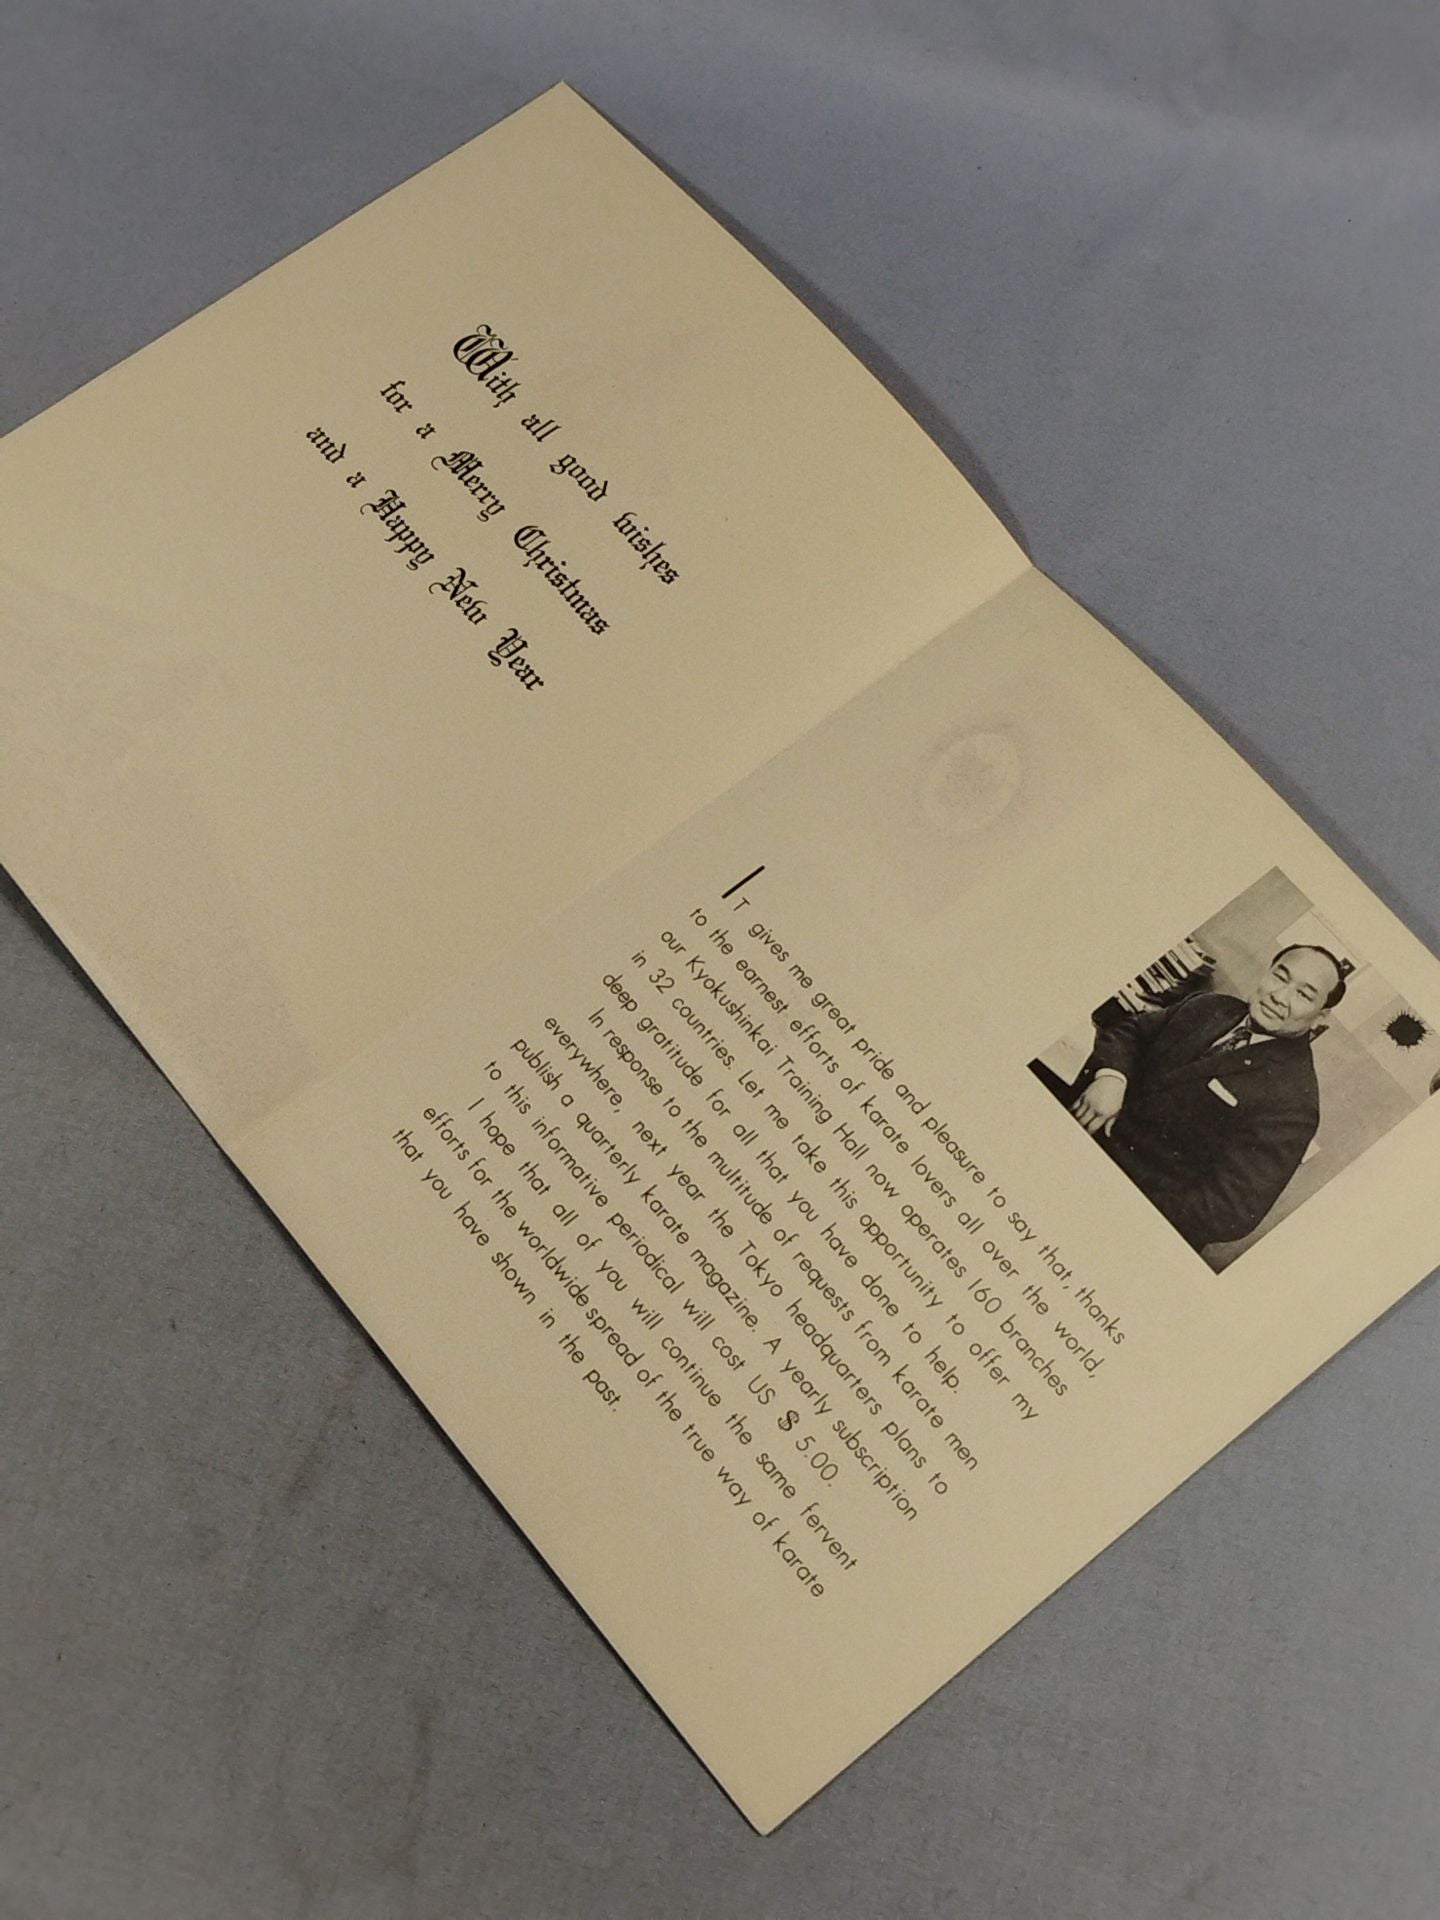 With all good wishes
for a Merry Christmas
and a Happy New Year
IT gives me great pride and pleasure to say that, thanks
to the earnest efforts of karate lovers all over the world,
our Kyokushinkai Training Hall now operates 160 branches
in 32 countries. Let me take this opportunity to offer my
deep gratitude for all that you have done to help.
In response to the multitude of requests from karate men
everywhere, next year the Tokyo headquarters plans to
publish a quarterly karate magazine. A yearly subscription
to this informative periodical will cost US $ 5.00.
I hope that all of you will continue the same fervent
efforts for the worldwide spread of the true way of karate
that you have shown in the past.